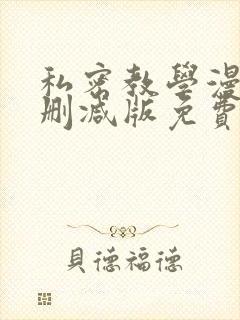 私密教學漫
刪減版免費
貝德福德